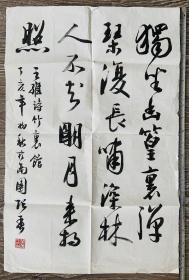 獨坐幽篁裏彈
琴復長嘯深林
人不知明月來相
照
王維詩竹裏館
丁亥年初秋於南園